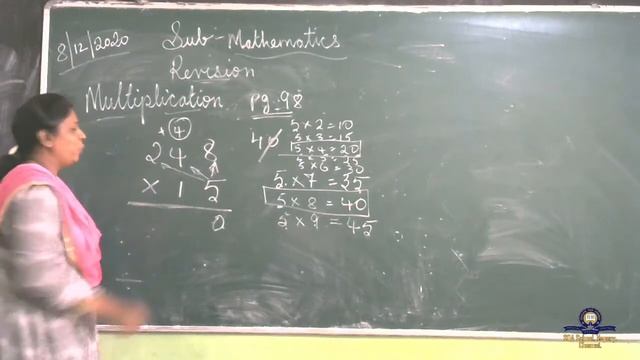 8/12/2020 Sub-Mathematics
Revision
Multiplication pg.98
+ 4
2 4 8
× 1 5
0
40
5×2=10
5×3=15
5×4=20
5×6=30
5×7=35
5×8=40
5×9=45